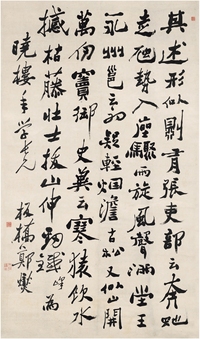 其述形似則有張吏部云奔蛇
走虺勢入座驟雨旋風聲滿堂王
永州邕云初疑輕烟澹古松又似山開
萬仞竇御史冀云寒猿飲水
撼枯藤壯士拔山伸勁鐵 峰
曉樓年學長兄 板橋鄭燮